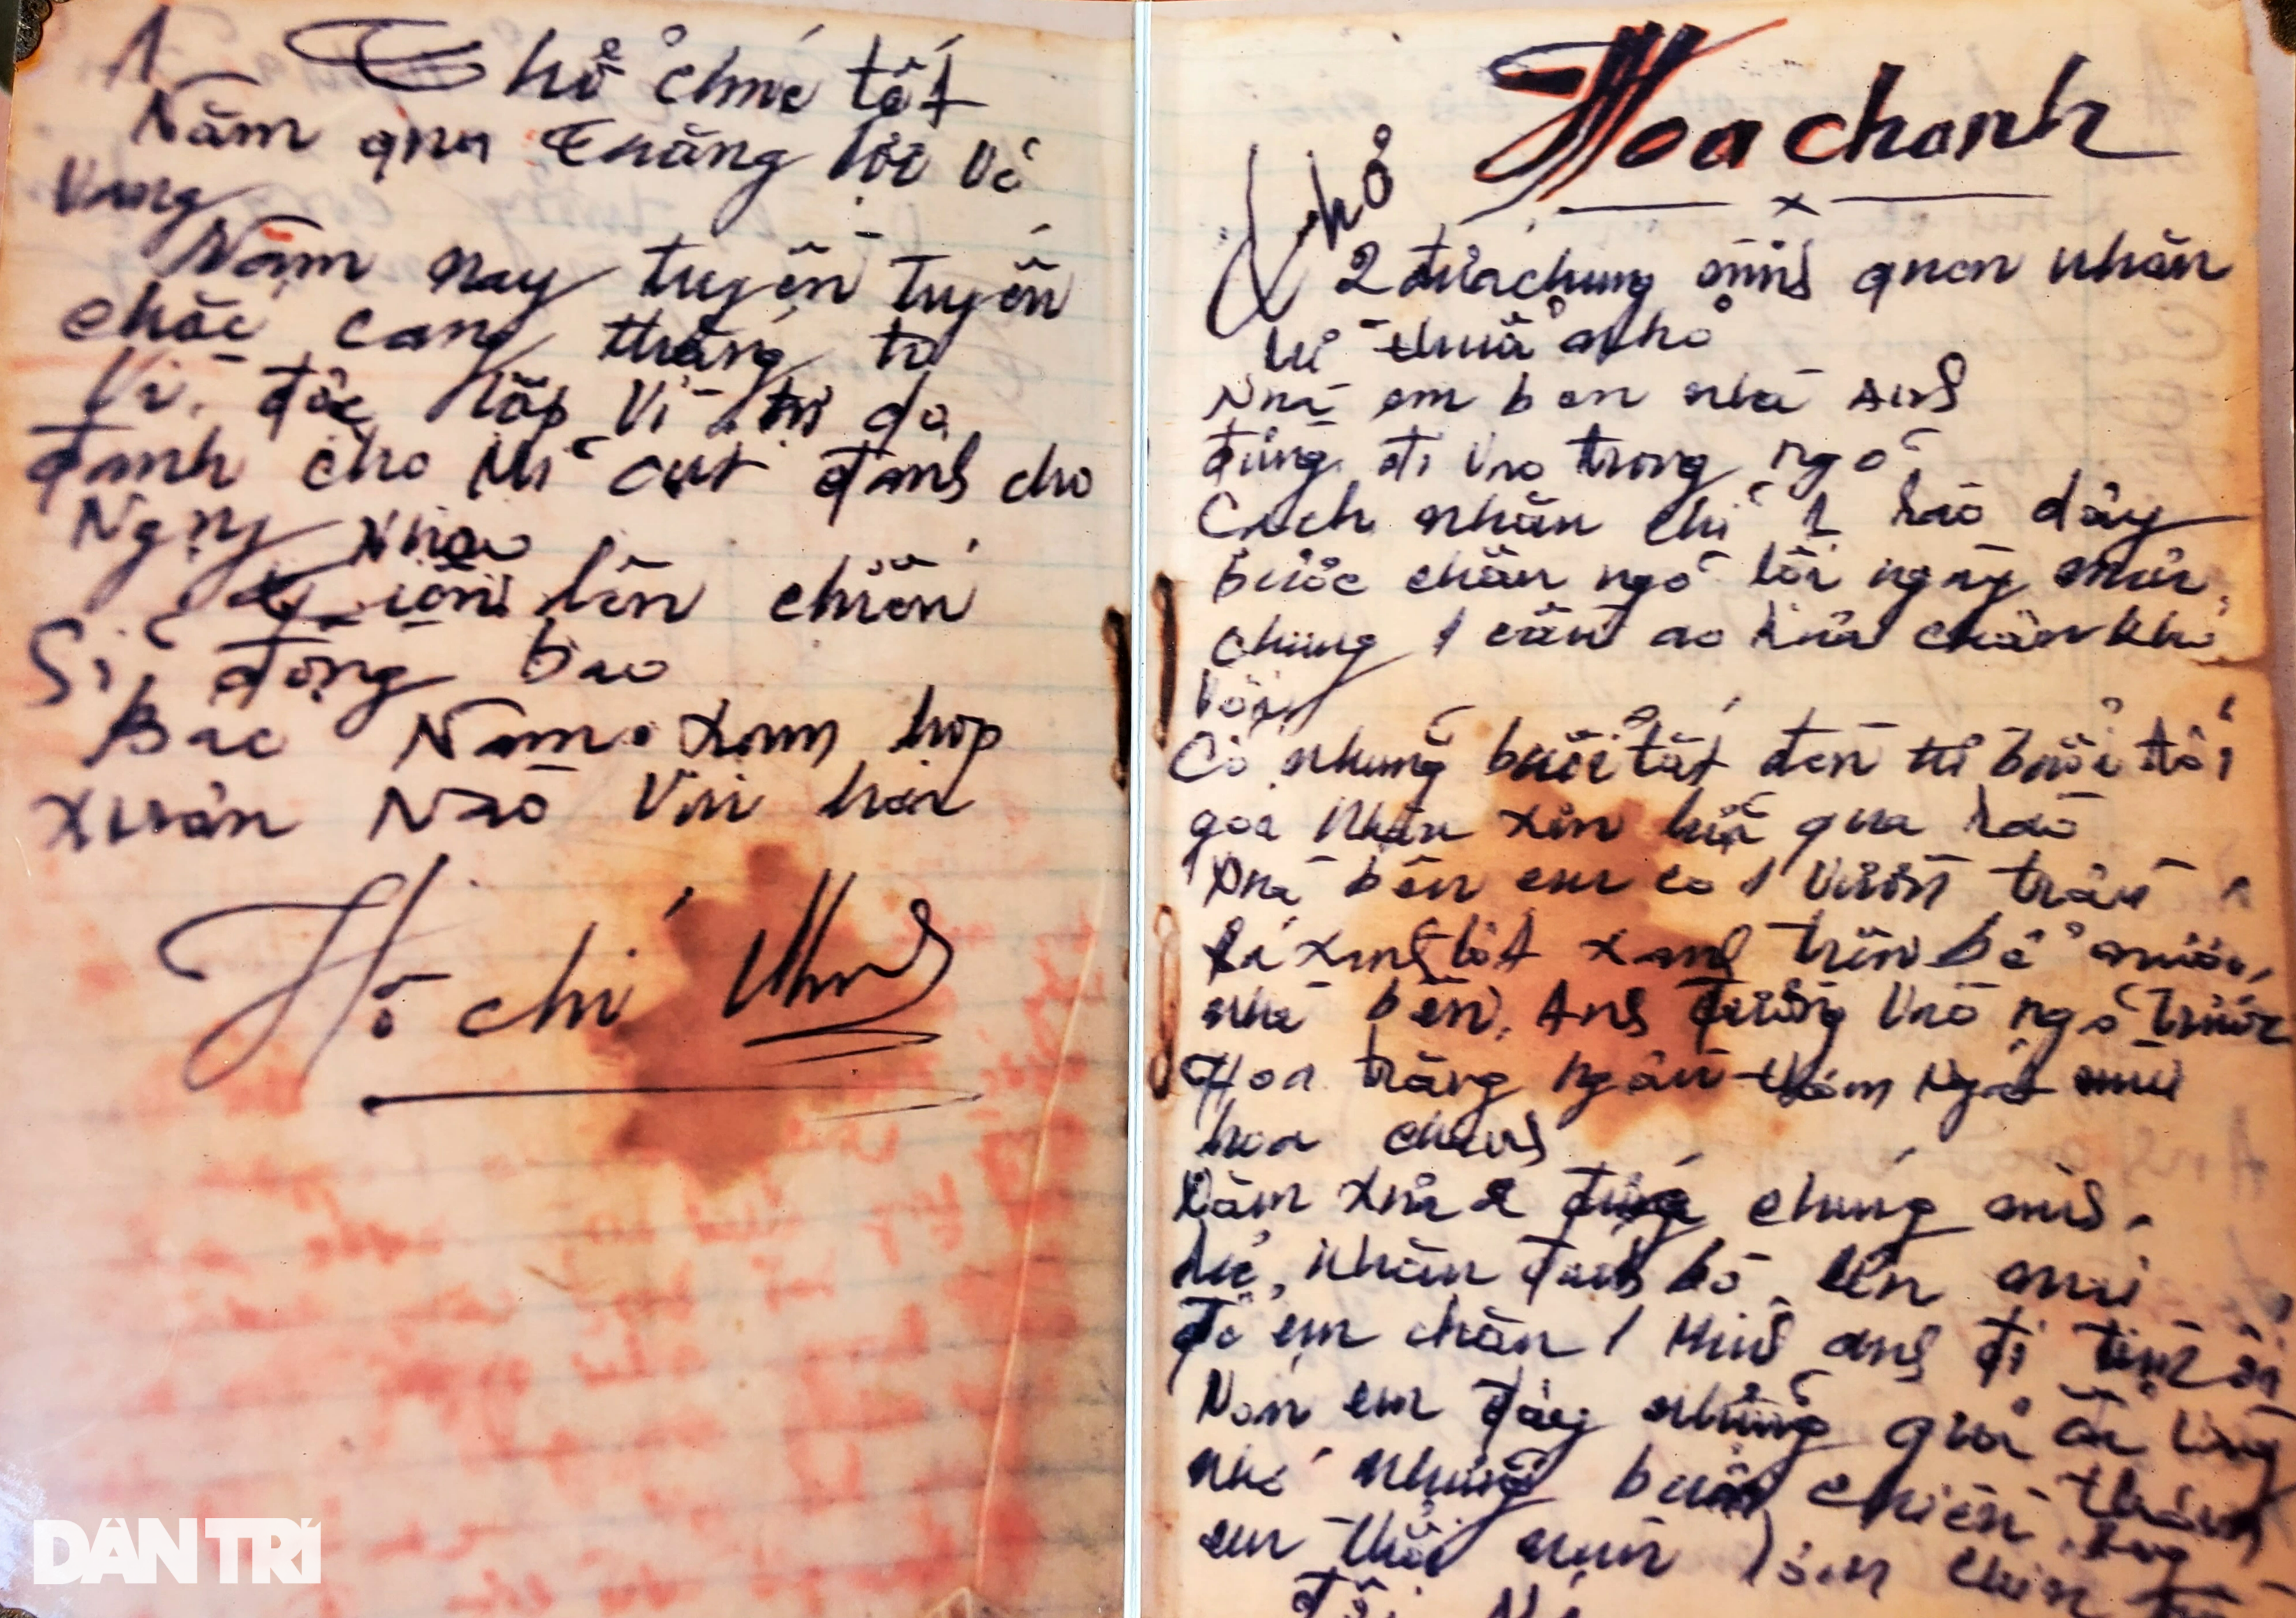 Thơ chúc tết
Năm qua thắng lợi vẻ
Vang
Năm nay tuyền tuyến
chắc càng thắng to
Vì độc lập Vì tự do
đánh cho Mĩ cút đánh cho
Ngụy nhào
tiến lên chiến
Sĩ đồng bào
Bắc Nam xum họp
xuân nào vui hơn
Hồ chí Minh
Hoa chanh
x
Thơ
2 đứa chúng mình quen nhau
từ thuở nhỏ
Nhà em bên nhà anh
đường đi vào trong ngõ
Cách nhau chỉ 1 rào dây
bước chân ngõ lối ngày mưa,
chung 1 cầu ao rửa chân khỏ
Có những buổi tắt đèn từ buổi tối
gọi nhau xin lửa qua rào
Nhà bên em có 1 vườn trầu
lá xanh tốt xanh trên bể nước,
nhà bên Anh đường vào ngõ trước
Hoa trắng ngần thơm ngát mùi
hoa chanh
Năm xưa 2 đứa chúng mình
nhau đánh bò lên núi
để em chăn 1 mình anh đi tìm ổi
Nón em đầy những quả ổi vàng
nhớ những buổi chiều
em thổi cơm